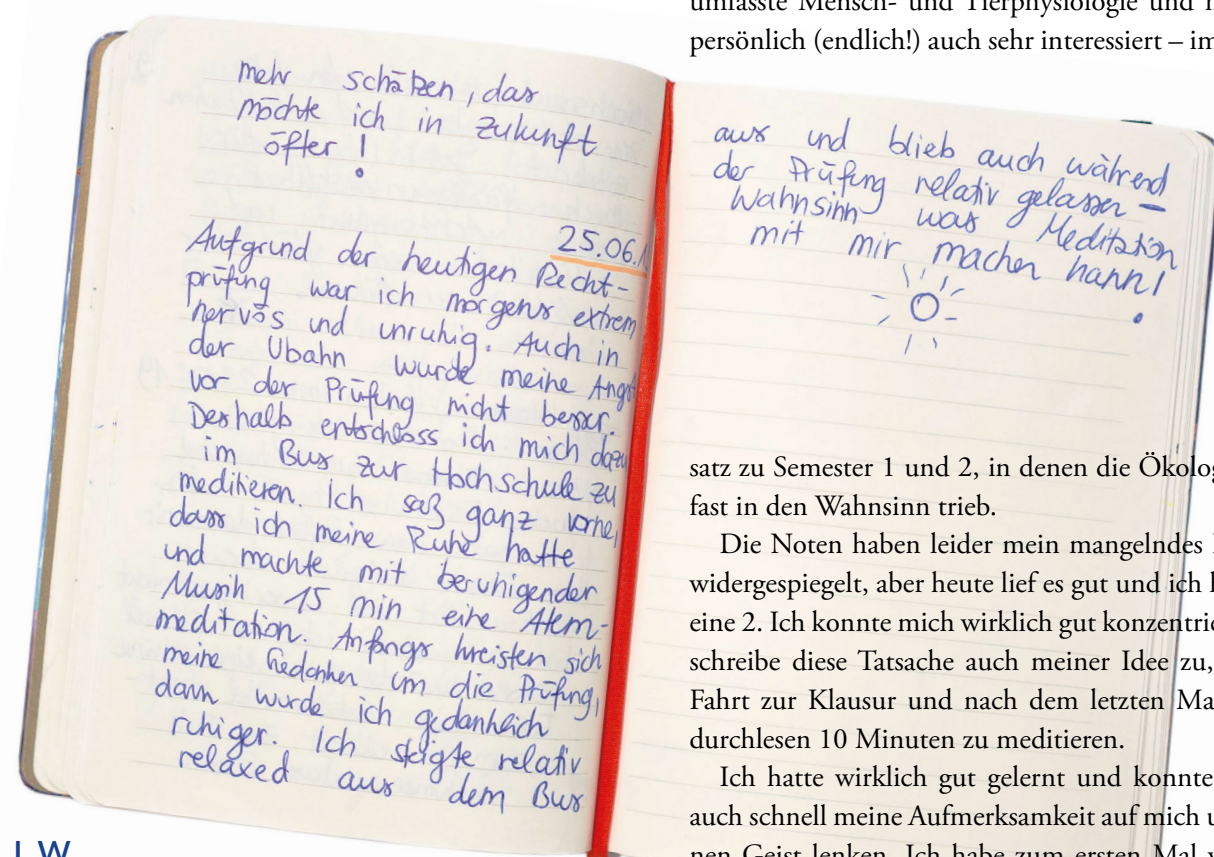 mehr schätzen, das
möchte ich in Zukunft
öfter!
25.06.
Aufgrund der heutigen Recht-
prüfung war ich morgens extrem
nervös und unruhig. Auch in
der Ubahn wurde meine Angst
vor der Prüfung nicht besser.
Deshalb entschloss ich mich dazu
im Bus zur Hochschule zu
meditieren. Ich saß ganz vorne,
dass ich meine Ruhe hatte
und machte mit beruhigender
Musik 15 min eine Atem-
meditation. Anfangs kreisten sich
meine Gedanken um die Prüfung,
dann wurde ich gedanklich
ruhiger. Ich steigte relativ
relaxed aus dem Bus
aus und blieb auch während
der Prüfung relativ gelassen –
Wahnsinn was Meditation
mit mir machen kann!
umfasste Mensch- und Tierphysiologie und
persönlich (endlich!) auch sehr interessiert – im
satz zu Semester 1 und 2, in denen die Ökolog
fast in den Wahnsinn trieb.
Die Noten haben leider mein mangelndes
widergespiegelt, aber heute lief es gut und ich
eine 2. Ich konnte mich wirklich gut konzentrie
schreibe diese Tatsache auch meiner Idee zu,
Fahrt zur Klausur und nach dem letzten Ma
durchlesen 10 Minuten zu meditieren.
Ich hatte wirklich gut gelernt und konnte
auch schnell meine Aufmerksamkeit auf mich u
nen Geist lenken. Ich habe zum ersten Mal